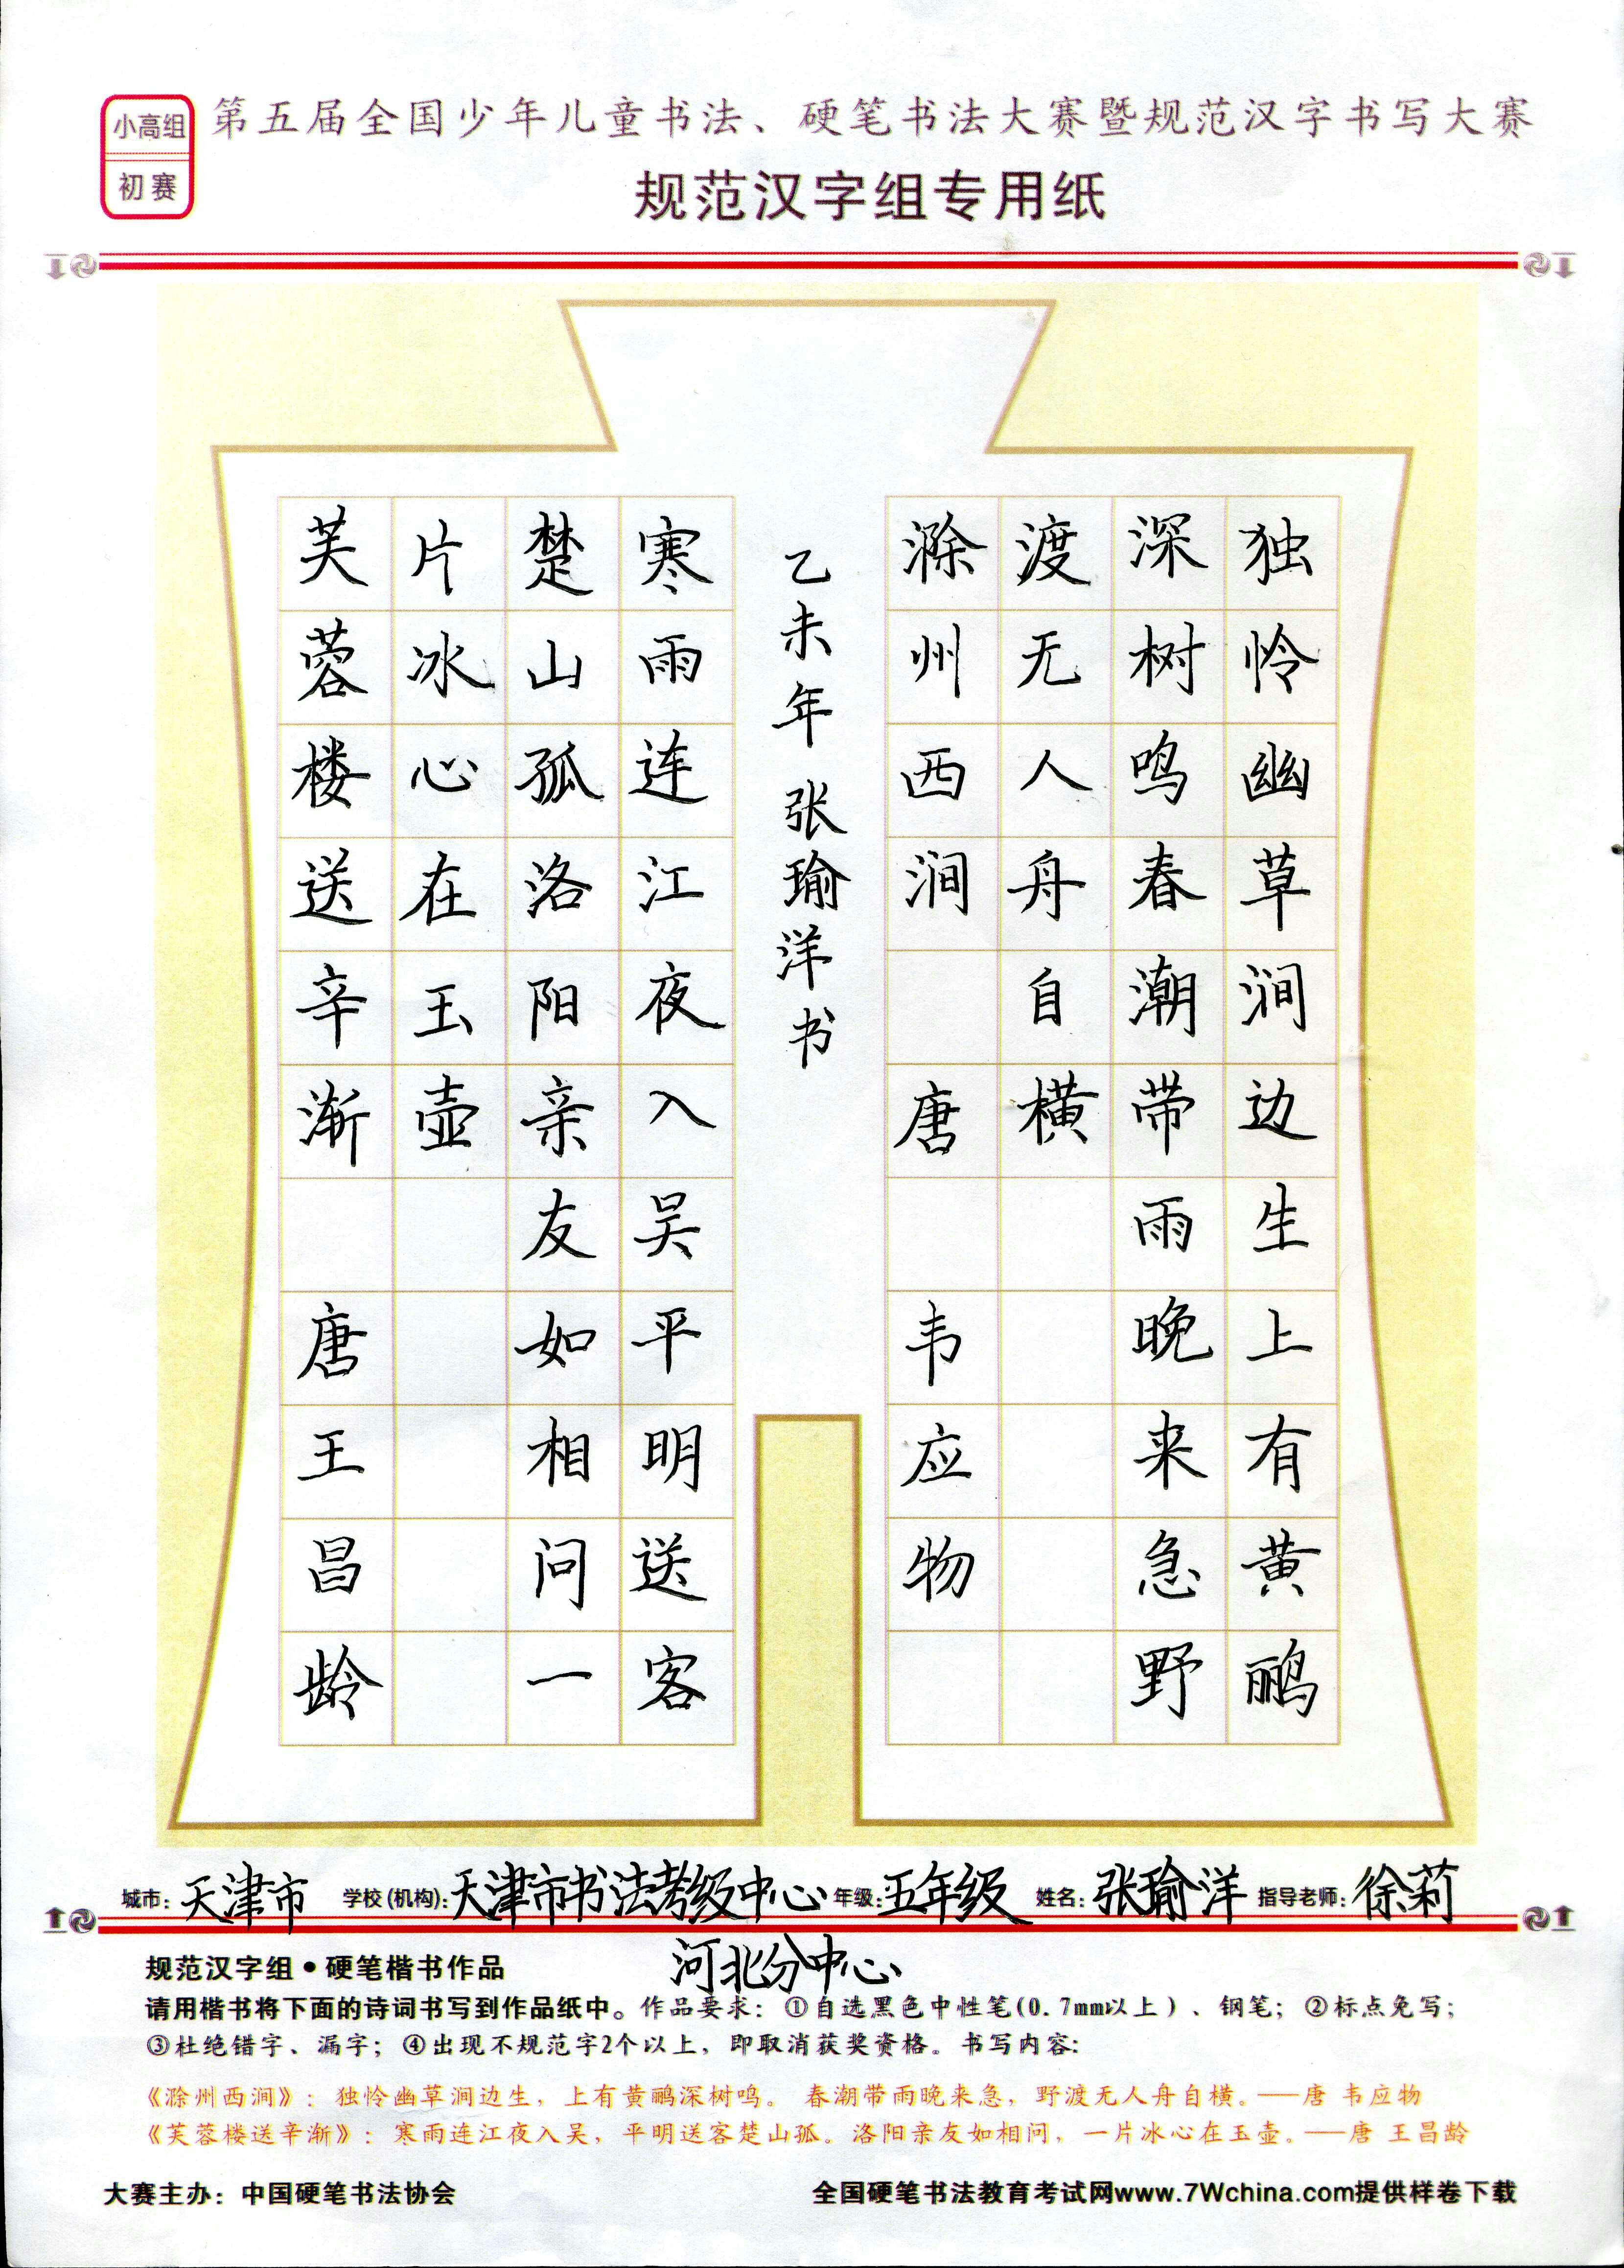 小高组
初赛
第五届全国少年儿童书法、硬笔书法大赛暨规范汉字书写大赛
规范汉字组专用纸
独怜幽草涧边生上有黄鹂
深树鸣春潮带雨晚来急野
渡无人舟自横
滁州西涧 唐 韦应物
乙未年张瑜洋书
寒雨连江夜入吴平明送客
楚山孤洛阳亲友如相问一
片冰心在玉壶
芙蓉楼送辛渐 唐王昌龄
城市：天津市 学校(机构)：天津市书法考级中心 年级：五年级 姓名：张瑜洋 指导老师：徐莉
河北分中心
规范汉字组·硬笔楷书作品
请用楷书将下面的诗词书写到作品纸中。作品要求：①自选黑色中性笔(0.7mm以上)、钢笔；②标点免写；
③杜绝错字、漏字；④出现不规范字2个以上，即取消获奖资格。书写内容：
《滁州西涧》：独怜幽草涧边生，上有黄鹂深树鸣。 春潮带雨晚来急，野渡无人舟自横。——唐 韦应物
《芙蓉楼送辛渐》：寒雨连江夜入吴，平明送客楚山孤。洛阳亲友如相问，一片冰心在玉壶。——唐 王昌龄
大赛主办：中国硬笔书法协会 全国硬笔书法教育考试网www.7Wchina.com提供样卷下载